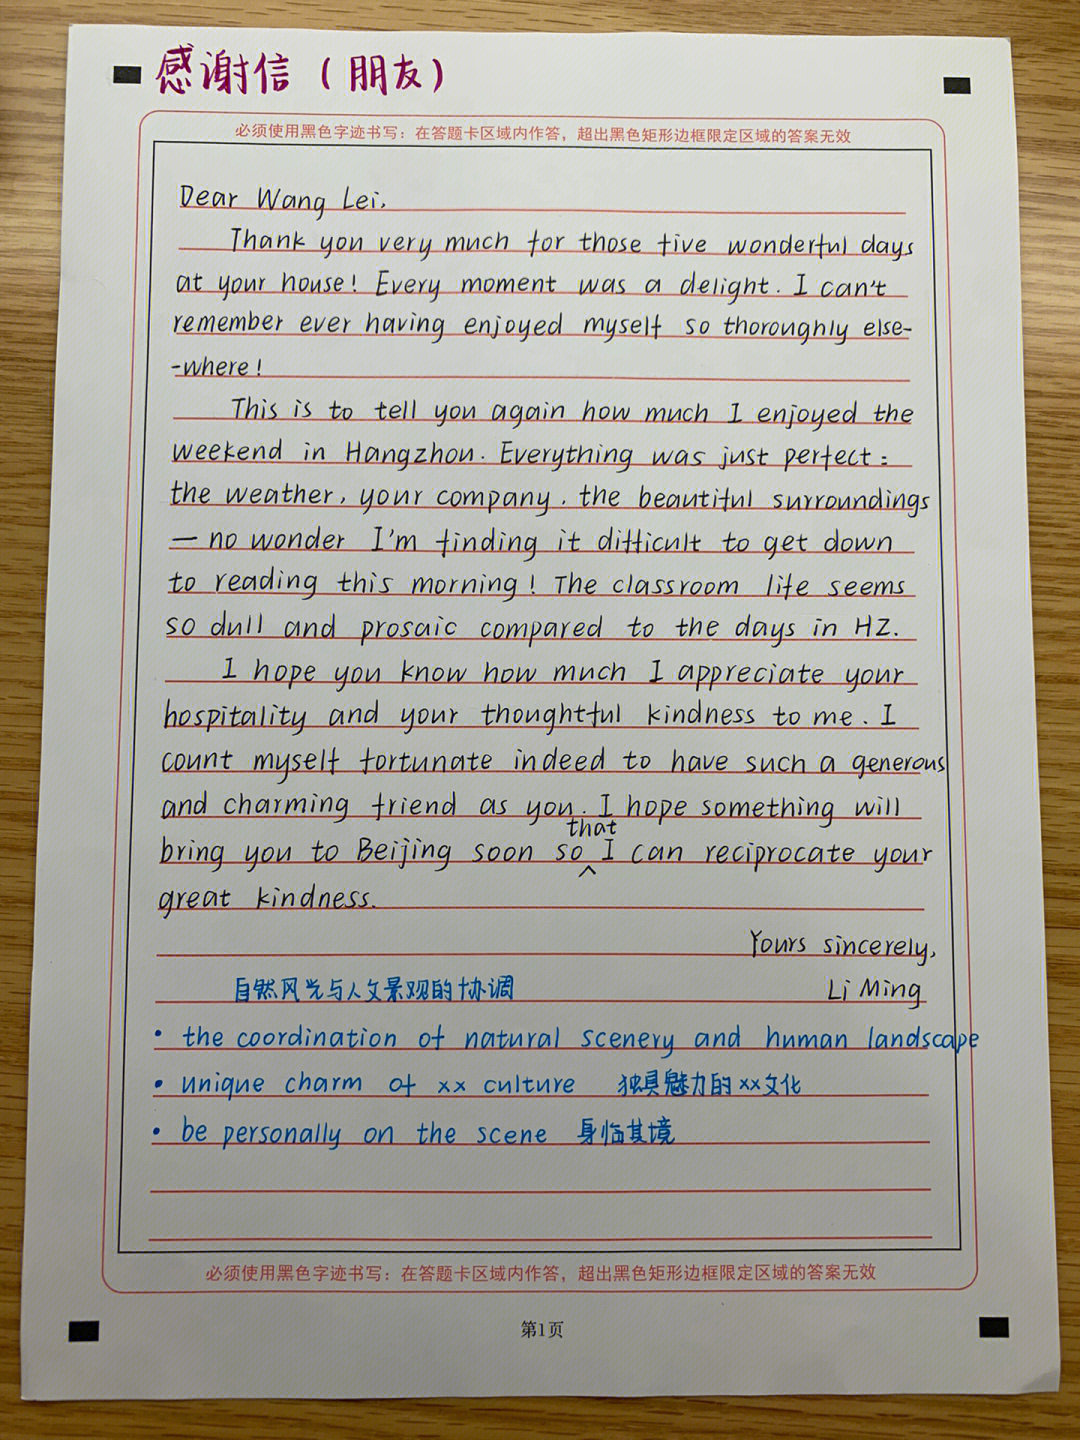 感谢信（朋友）
必须使用黑色字迹书写：在答题卡区域内作答，超出黑色矩形边框限定区域的答案无效
Dear Wang Lei,
Thank you very much for those five wonderful days
at your house! Every moment was a delight. I can't
remember ever having enjoyed myself so thoroughly else-
-where!
This is to tell you again how much I enjoyed the
weekend in Hangzhou. Everything was just perfect:
the weather, your company, the beautiful surroundings
— no wonder I'm finding it difficult to get down
to reading this morning! The classroom life seems
so dull and prosaic compared to the days in HZ.
I hope you know how much I appreciate your
hospitality and your thoughtful kindness to me. I
count myself fortunate indeed to have such a generous
and charming friend as you. I hope something will
bring you to Beijing soon so that I can reciprocate your
great kindness.
Yours sincerely,
Li Ming
自然风光与人文景观的协调
• the coordination of natural scenery and human landscape
• unique charm of xx culture 独具魅力的xx文化
• be personally on the scene 身临其境
必须使用黑色字迹书写：在答题卡区域内作答，超出黑色矩形边框限定区域的答案无效
第1页